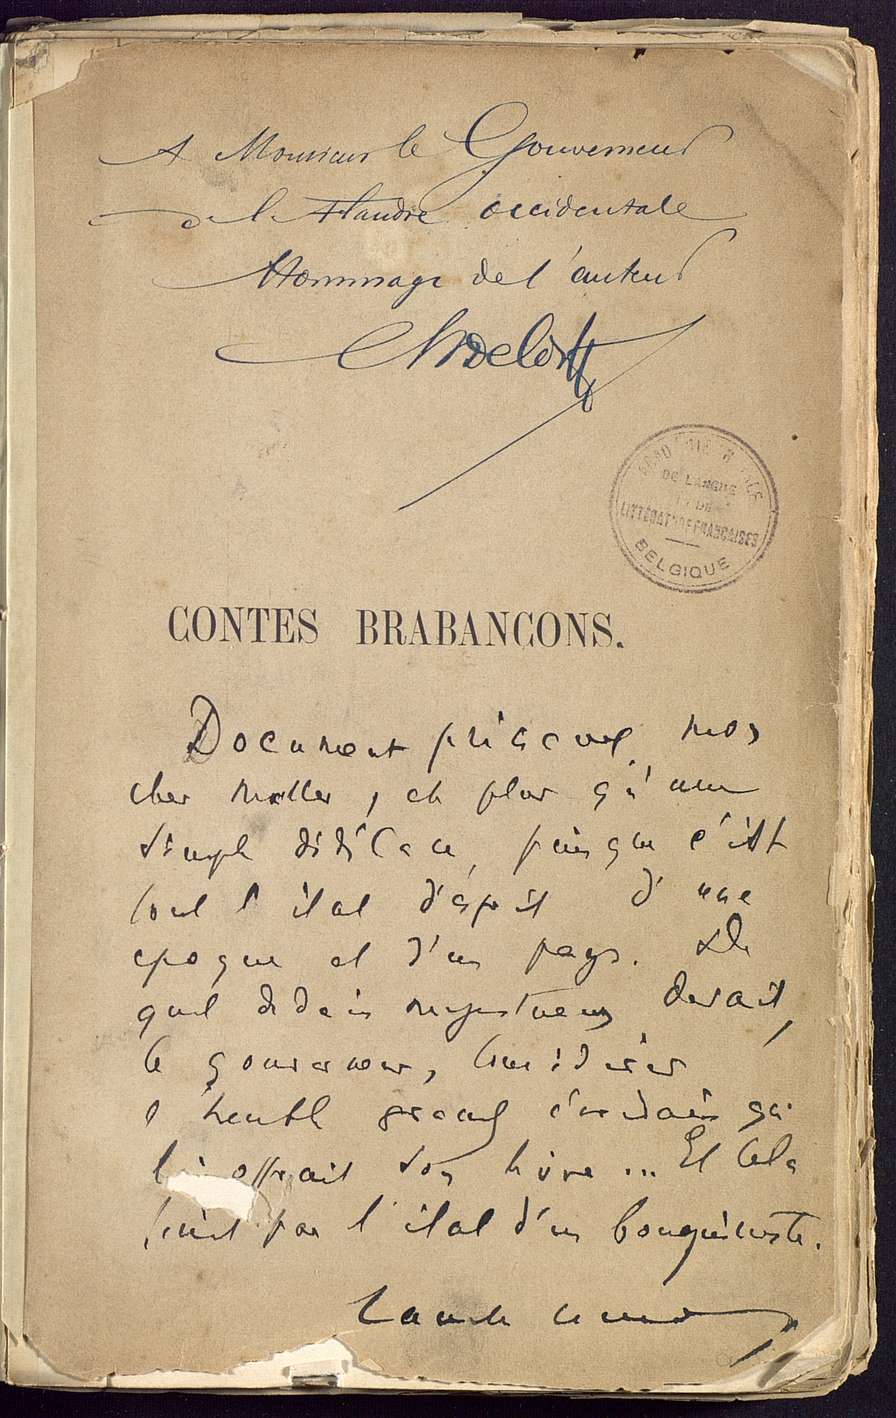 A Monsieur le Gouverneur
de la Flandre occidentale
Hommage de l'auteur
Ch De Coster
DE LANGUE
ET DE
LITTÉRATURE FRANÇAISES
BELGIQUE
CONTES BRABANÇONS.
Document précieux, mon
cher maître, et plus qu'une
simple dédicace, puisque c'est
tout l'état d'esprit d'une
époque et d'un pays. De
quel dédain majestueux devait,
le gouverneur, considérer
l'humble grand écrivain qui
lui offrait son livre ... Et cela
finit par l'étal d'un bouquiniste.